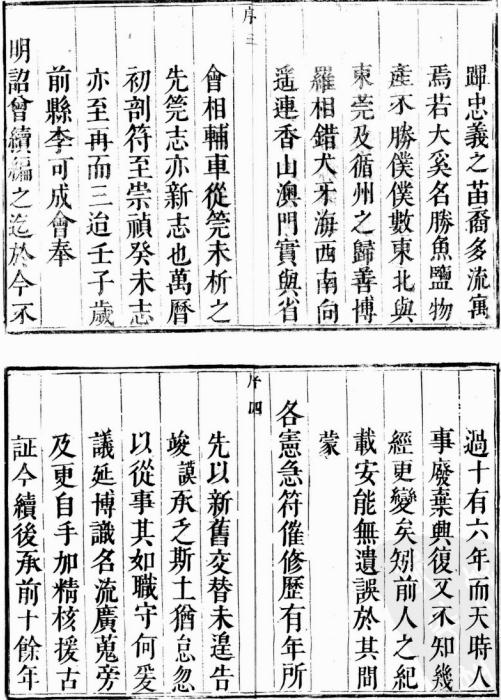 序三
蹕忠義之苗裔多流寓
焉若大奚名勝魚鹽物
產不勝僕僕數東北與
東莞及循州之歸善博
羅相錯犬牙海西南向
遥連香山澳門實與省
會相輔車從筦未析之
先筦志亦新志也萬曆
初剖符至崇禎癸未志
亦至再而三迨壬子歲
前縣李可成會奉
明詔曾續編之迄於今不
序四
過十有六年而天時人
事廢棄興復又不知幾
經更變矣矧前人之紀
載安能無遺誤於其間
蒙
各憲急符催修歷有年所
先以新舊交替未遑告
竣謨承乏斯土猶怠忽
以從事其如職守何爰
議延博識名流廣蒐旁
及更自手加精核援古
証今續後承前十餘年